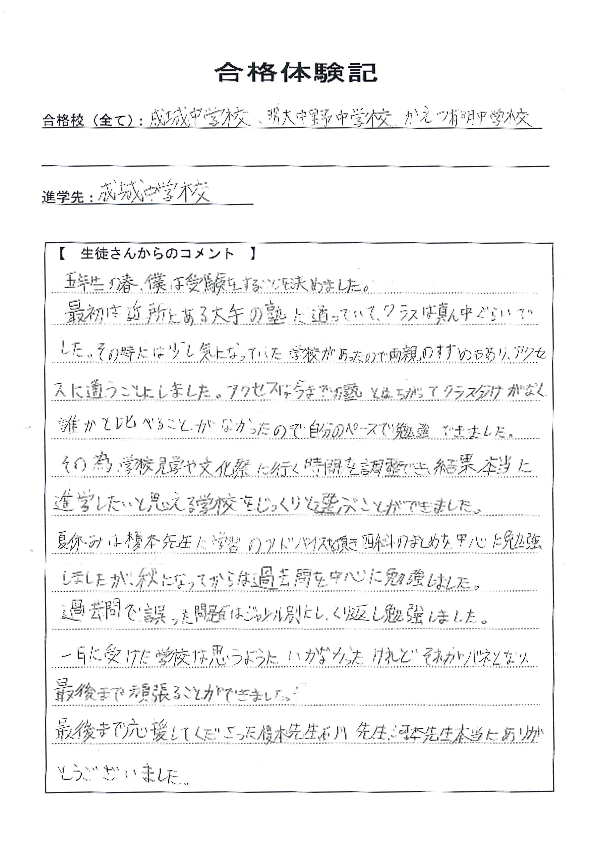 合格体験記
合格校（全て）：成城中学校、明大中野中学校 かえつ有明中学校
進学先：成城中学校
【 生徒さんからのコメント 】
五年生の春、僕は受験をすることを決めました。
最初は近所にある大手の塾に通っていて、クラスは真ん中ぐらいで
した。その時には少し気になっていた学校があったので両親のすすめもあり、アクセ
スに通うことにしました。アクセスは今までの塾とはちがってクラス分けがなく
誰かと比べることがなかったので自分のペースで勉強できました。
その為、学校見学や文化祭に行く時間を調整でき、結果、本当に
進学したいと思える学校をじっくりと選ぶことができました。
夏休みは榎本先生に学習のアドバイスを頂き四科のまとめを中心に勉強
しましたが、秋になってからは過去問を中心に勉強しました。
過去問で誤った問題はジャンル別にし、くり返し勉強しました。
一月に受けた学校は思うようにいかなかったけれどそれがバネとなり、
最後まで頑張ることができました。
最後まで応援してくださった榎本先生、石川先生、河本先生本当にありが
とうございました。